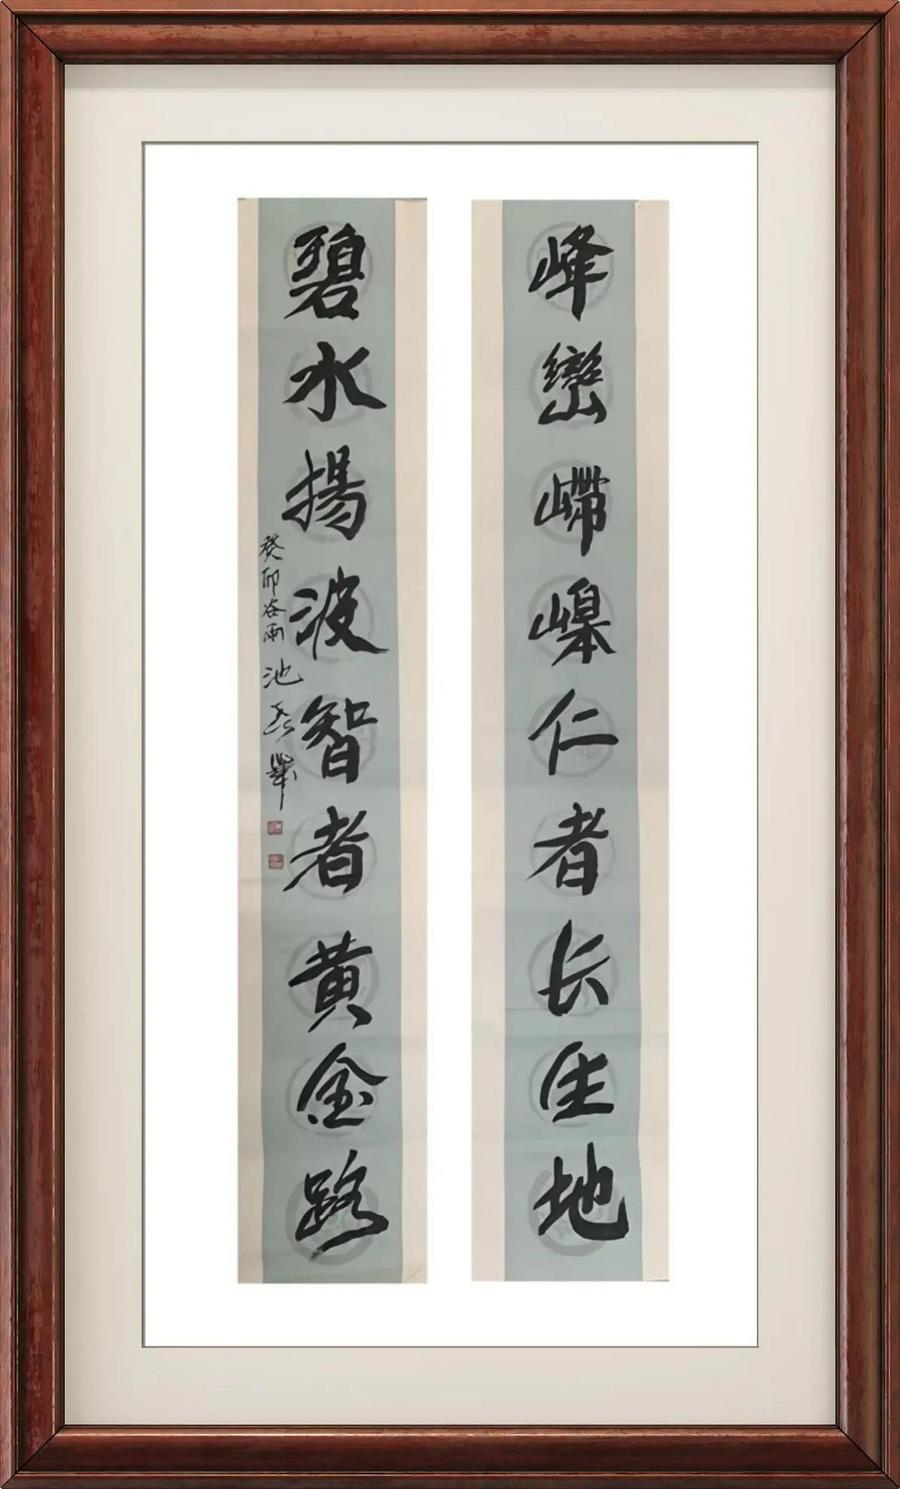 峰巒嵽嵲仁者长生地
碧水揚波智者黄金路
癸卯谷雨池